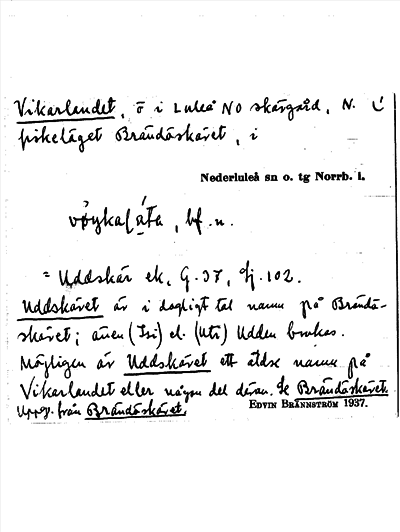 Vikarlandet, ö i Luleå NO skärgård, N.
fiskeläget Brändöskäret, i
Nederluleå sn o. tg Norrb. l.
bf. n.
= Uddskär ek. G. 37, Gj. 102.
Uddskäret är i dagligt tal namn på Brändö-
skäret; även (Isi) el. (Uti) Udden brukas.
Möjligen är Uddskäret ett äldre namn på
Vikarlandet eller någon del därav. Se Brändöskäret.
Uppg. från Brändöskäret.
EDVIN BRÄNNSTRÖM 1937.